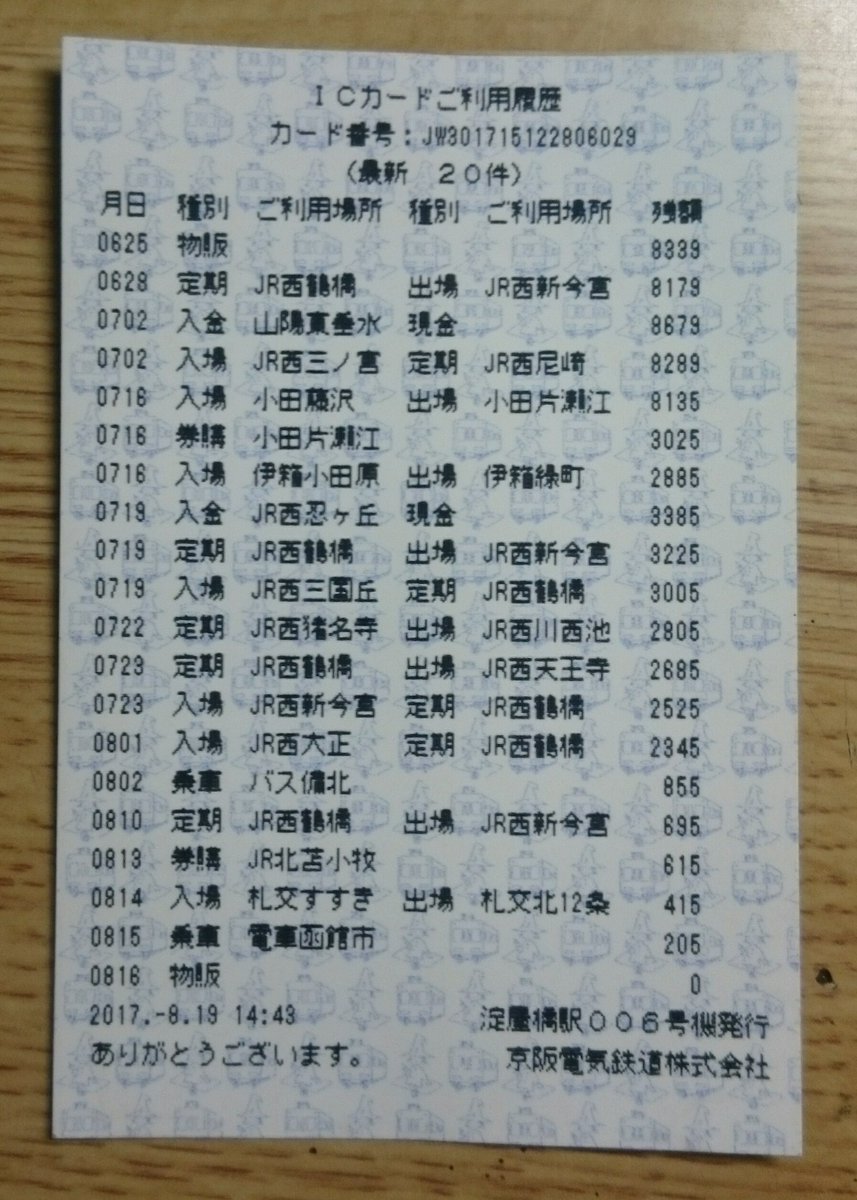 ICカードご利用履歴
カード番号:JW301715122806029
(最新 20件)
月日 種別 ご利用場所 種別 ご利用場所 残額
0625 物販 8339
0628 定期 JR西鶴橋 出場 JR西新今宮 8179
0702 入金 山陽東垂水 現金 8679
0702 入場 JR西三ノ宮 定期 JR西尼崎 8289
0716 入場 小田藤沢 出場 小田片瀬江 8135
0716 券購 小田片瀬江 3025
0716 入場 伊箱小田原 出場 伊箱緑町 2885
0719 入金 JR西忍ヶ丘 現金 3385
0719 定期 JR西鶴橋 出場 JR西新今宮 3225
0719 入場 JR西三国丘 定期 JR西鶴橋 3005
0722 定期 JR西猪名寺 出場 JR西川西池 2805
0723 定期 JR西鶴橋 出場 JR西天王寺 2685
0723 入場 JR西新今宮 定期 JR西鶴橋 2525
0801 入場 JR西大正 定期 JR西鶴橋 2345
0802 乗車 バス備北 855
0810 定期 JR西鶴橋 出場 JR西新今宮 695
0813 券購 JR北苫小牧 615
0814 入場 札交すすき 出場 札交北12条 415
0815 乗車 電車函館市 205
0816 物販 0
2017.-8.19 14:43 淀屋橋駅006号機発行
ありがとうございます。 京阪電気鉄道株式会社